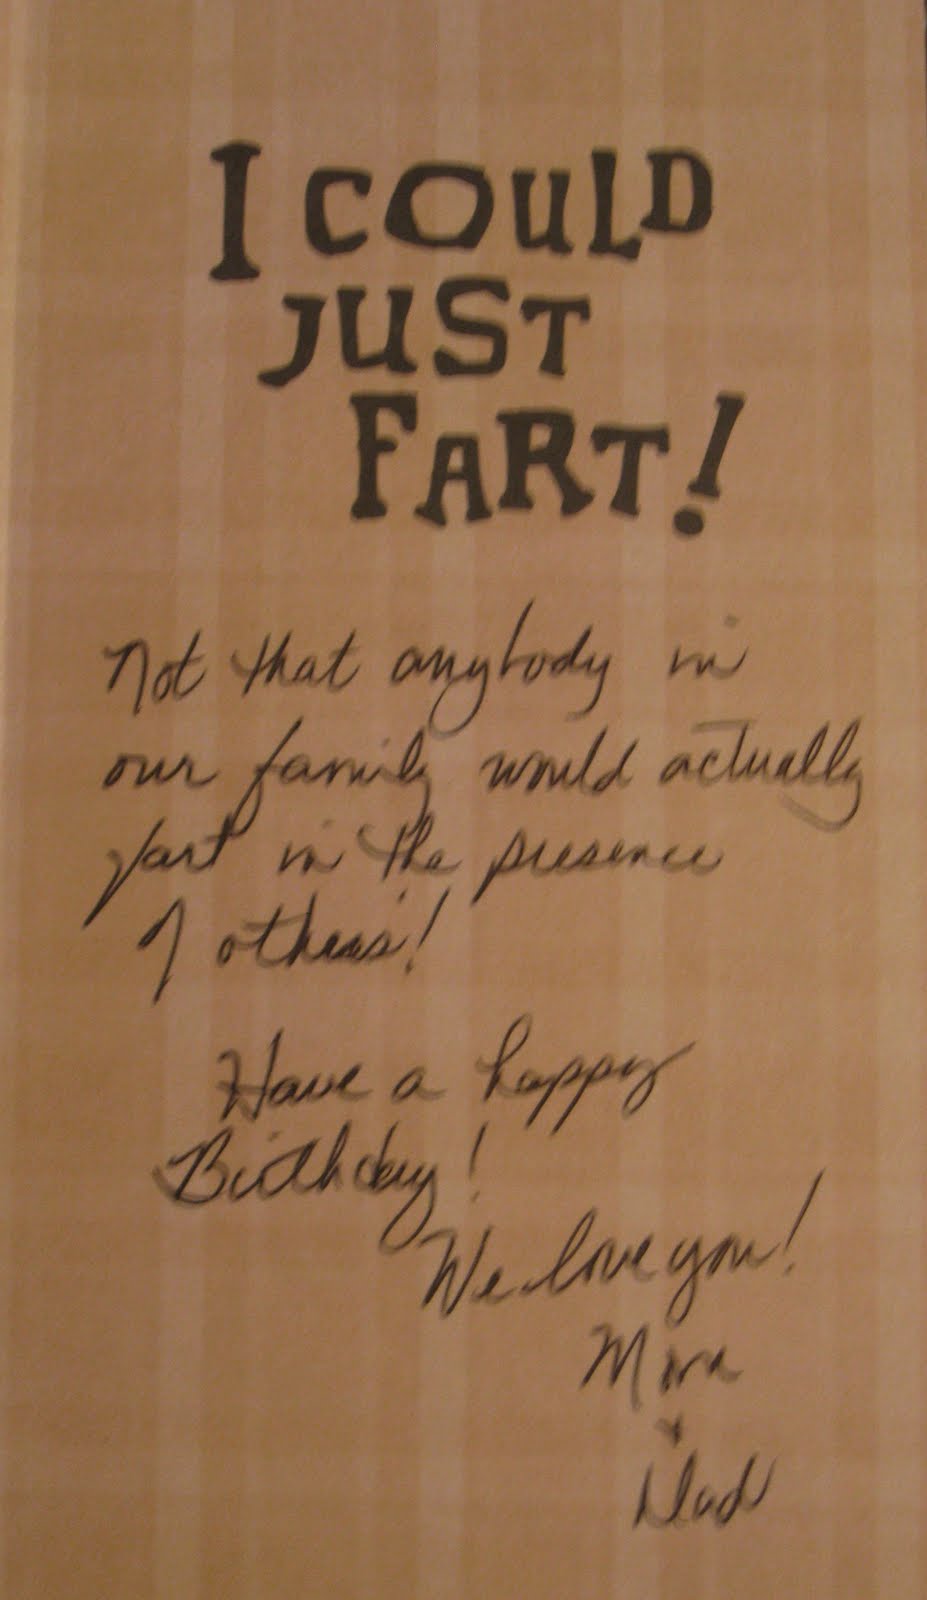 I COULD
JUST
FART!
Not that anybody in
our family would actually
fart in the presence
of others!
Have a happy
Birthday!
We love you!
Mom
+
Dad